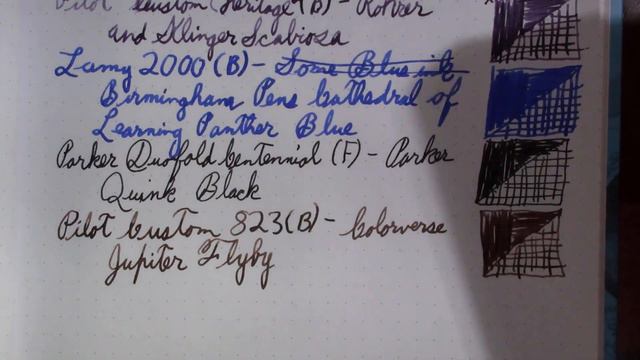 Pilot Custom Heritage (B) - Rohrer
and Klinger Scabiosa
Lamy 2000 (B) - Some Blue ink
Birmingham Pens Cathedral of
Learning Panther Blue
Parker Duofold Centennial (F) - Parker
Quink Black
Pilot Custom 823 (B) - Colorverse
Jupiter Flyby